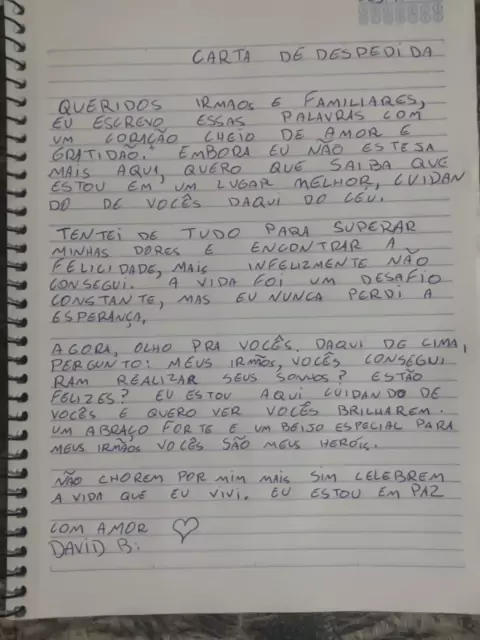 CARTA DE DESPEDIDA
QUERIDOS IRMAOS E FAMILIARES,
EU ESCREVO ESSAS PALAVRAS COM
UM CORAÇÃO CHEIO DE AMOR E
GRATIDÃO. EMBORA EU NÃO ESTEJA
MAIS AQUI, QUERO QUE SAIBA QUE
ESTOU EM UM LUGAR MELHOR, CUIDAN
DO DE VOCÊS DAQUI DO CEU.
TENTEI DE TUDO PARA SUPERAR
MINHAS DORES E ENCONTRAR A
FELICIDADE, MAIS INFELIZMENTE NÃO
CONSEGUI. A VIDA FOI UM DESAFIO
CONSTANTE, MAS EU NUNCA PERDI A
ESPERANÇA,
AGORA, OLHO PRA VOCÊS. DAQUI DE CIMA,
PERGUNTO: MEUS IRMÃOS, VOCÊS CONSEGUI
RAM REALIZAR SEUS SONHOS? ESTÃO
FELIZES? EU ESTOU AQUI CUIDANDO DE
VOCÊS E QUERO VER VOCÊS BRILHAREM.
UM ABRAÇO FORTE E UM BEIJO ESPECIAL PARA
MEUS IRMÃOS VOCÊS SÃO MEUS HERÓIS.
NÃO CHOREM POR MIM MAIS SIM CELEBREM
A VIDA QUE EU VIVI. EU ESTOU EM PAZ
COM AMOR ♡
DAVID B: